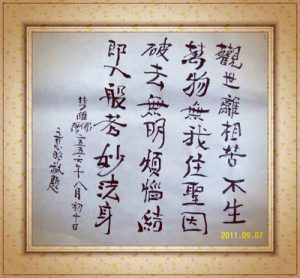 觀世離相不生
萬物無我住聖因
破去無明煩惱結
即入般若妙法身
二五五六年八月初十
敬題
2011.09.07